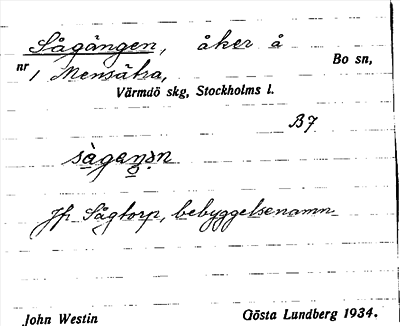 Sågängen, åker å Bo sn,
nr 1 Mensätra,
Värmdö skg, Stockholms l.
B7
Jfr Sågtorp, bebyggelsenamn
John Westin Gösta Lundberg 1934.